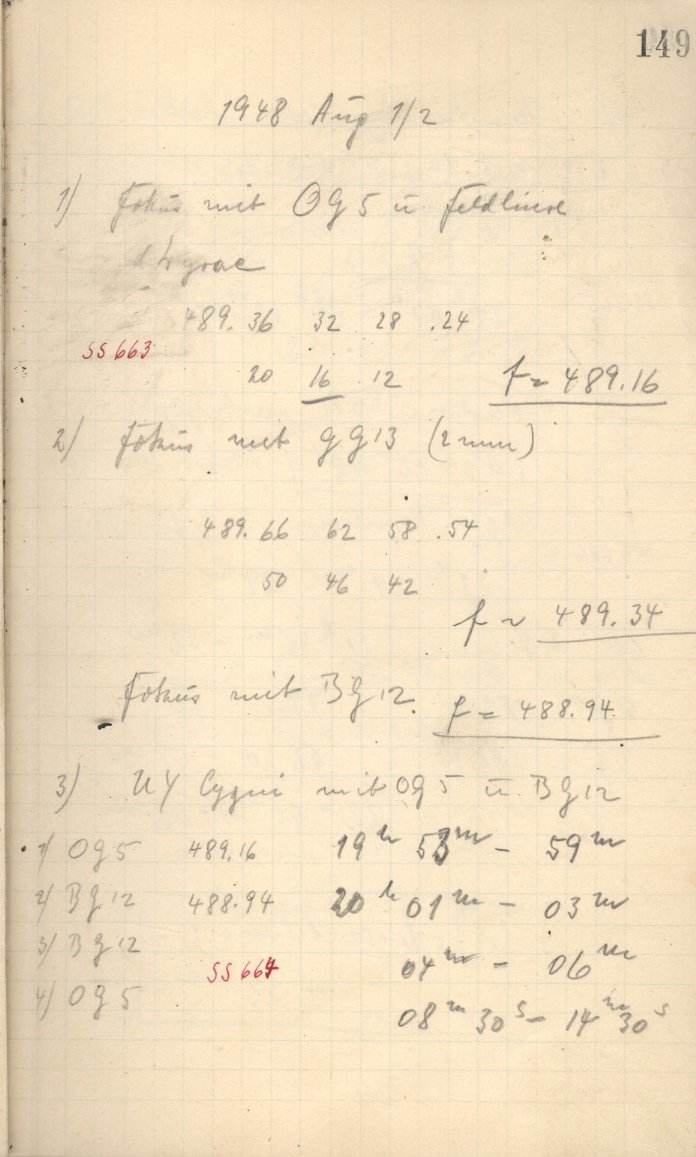 149
1948 Aug 1/2
1) Fokus mit OG 5 u. Feldlinse
Lyrae
489.36 32 28 .24
SS 663
20 16 12 f = 489.16
2) Fokus mit GG 13 (2 mm)
489.66 62 58 .54
50 46 42
f ~ 489.34
Fokus mit BG 12 f = 488.94
3) UY Cygni mit OG 5 u. BG 12
1/ OG 5 489.16 19h 53m - 59m
2/ BG 12 488.94 20h 01m - 03m
3/ BG 12 04m - 06m
SS 664
4/ OG 5 08m 30s - 14m 30s